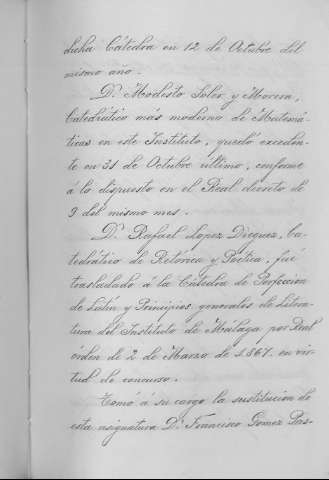 dicha Cátedra en 12 de Octubre del
mismo año.
Dn. Modesto Soler y Morera,
Catedrático más moderno de Matemá-
ticas en este Instituto, quedó exceden-
te en 31 de Octubre último, conforme
á lo dispuesto en el Real decreto de
9 del mismo mes.
Dn. Rafael López Dieguez, Ca-
tedrático de Retorica y Poética, fué
trasladado á la Cátedra de Perfeccion
de Latin y Principios generales de Litera-
tura del Instituto de Málaga por Real
orden de 2 de Marzo de 1867. en vir-
tud de concurso.
Tomó á su cargo la sustitucion de
esta asignatura Dn. Francisco Gomez Pas-